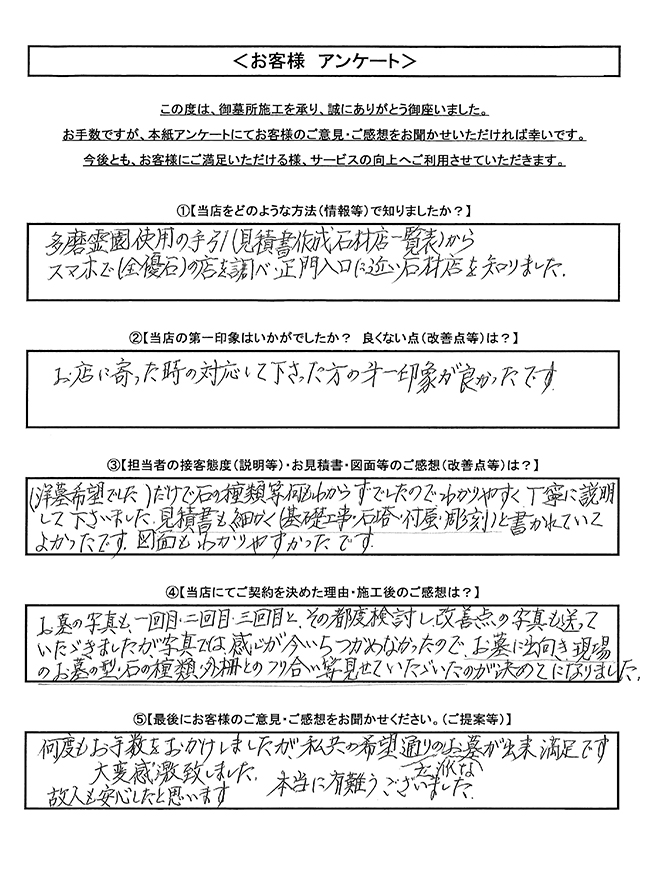 ＜お客様　アンケート＞
この度は、御墓所施工を承り、誠にありがとう御座いました。
お手数ですが、本紙アンケートにてお客様のご意見・ご感想をお聞かせいただければ幸いです。
今後とも、お客様にご満足いただける様、サービスの向上へご利用させていただきます。
①【当店をどのような方法（情報等）で知りましたか？】
多磨霊園使用の手引（見積書作成石材店一覧表）から
スマホで（全優石）の店を調べ、正門入口に近い石材店を知りました。
②【当店の第一印象はいかがでしたか？　良くない点（改善点等）は？】
お店に寄った時の対応して下さった方の第一印象が良かったです。
③【担当者の接客態度（説明等）・お見積書・図面等のご感想（改善点等）は？】
（洋墓希望でした）だけで石の種類等何もわからずでしたのでわかりやすく丁寧に説明
して下さいました。見積書も細かく（基礎工事・石塔・付属・彫刻）と書かれていて
よかったです。図面もわかりやすかったです。
④【当店にてご契約を決めた理由・施工後のご感想は？】
お墓の写真も、一回目・二回目・三回目と、その都度検討し、改善点の写真も送って
いただきましたが、写真では、感じが今いちつかめなかったので、お墓に出向き、現場
のお墓の型・石の種類・外柵とのつり合い等見せていただいたのが決めてになりました。
⑤【最後にお客様のご意見・ご感想をお聞かせください。（ご提案等）】
何度もお手数をおかけしましたが、私共の希望通りのお墓が出来満足です
立派な
大変感激致しました。
本当に有難うございました。
故人も安心したと思います